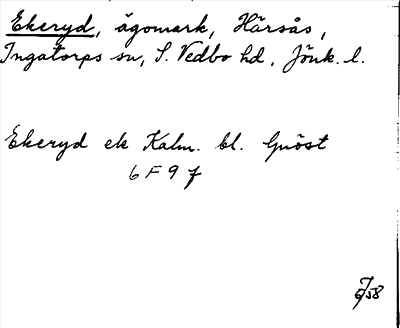 Ekeryd, ägomark, Hårsås,
Ingatorps sn, S. Vedbo hd, Jönk. l.
Ekeryd ek Kalm. bl. Gnöst
6 F 9 f